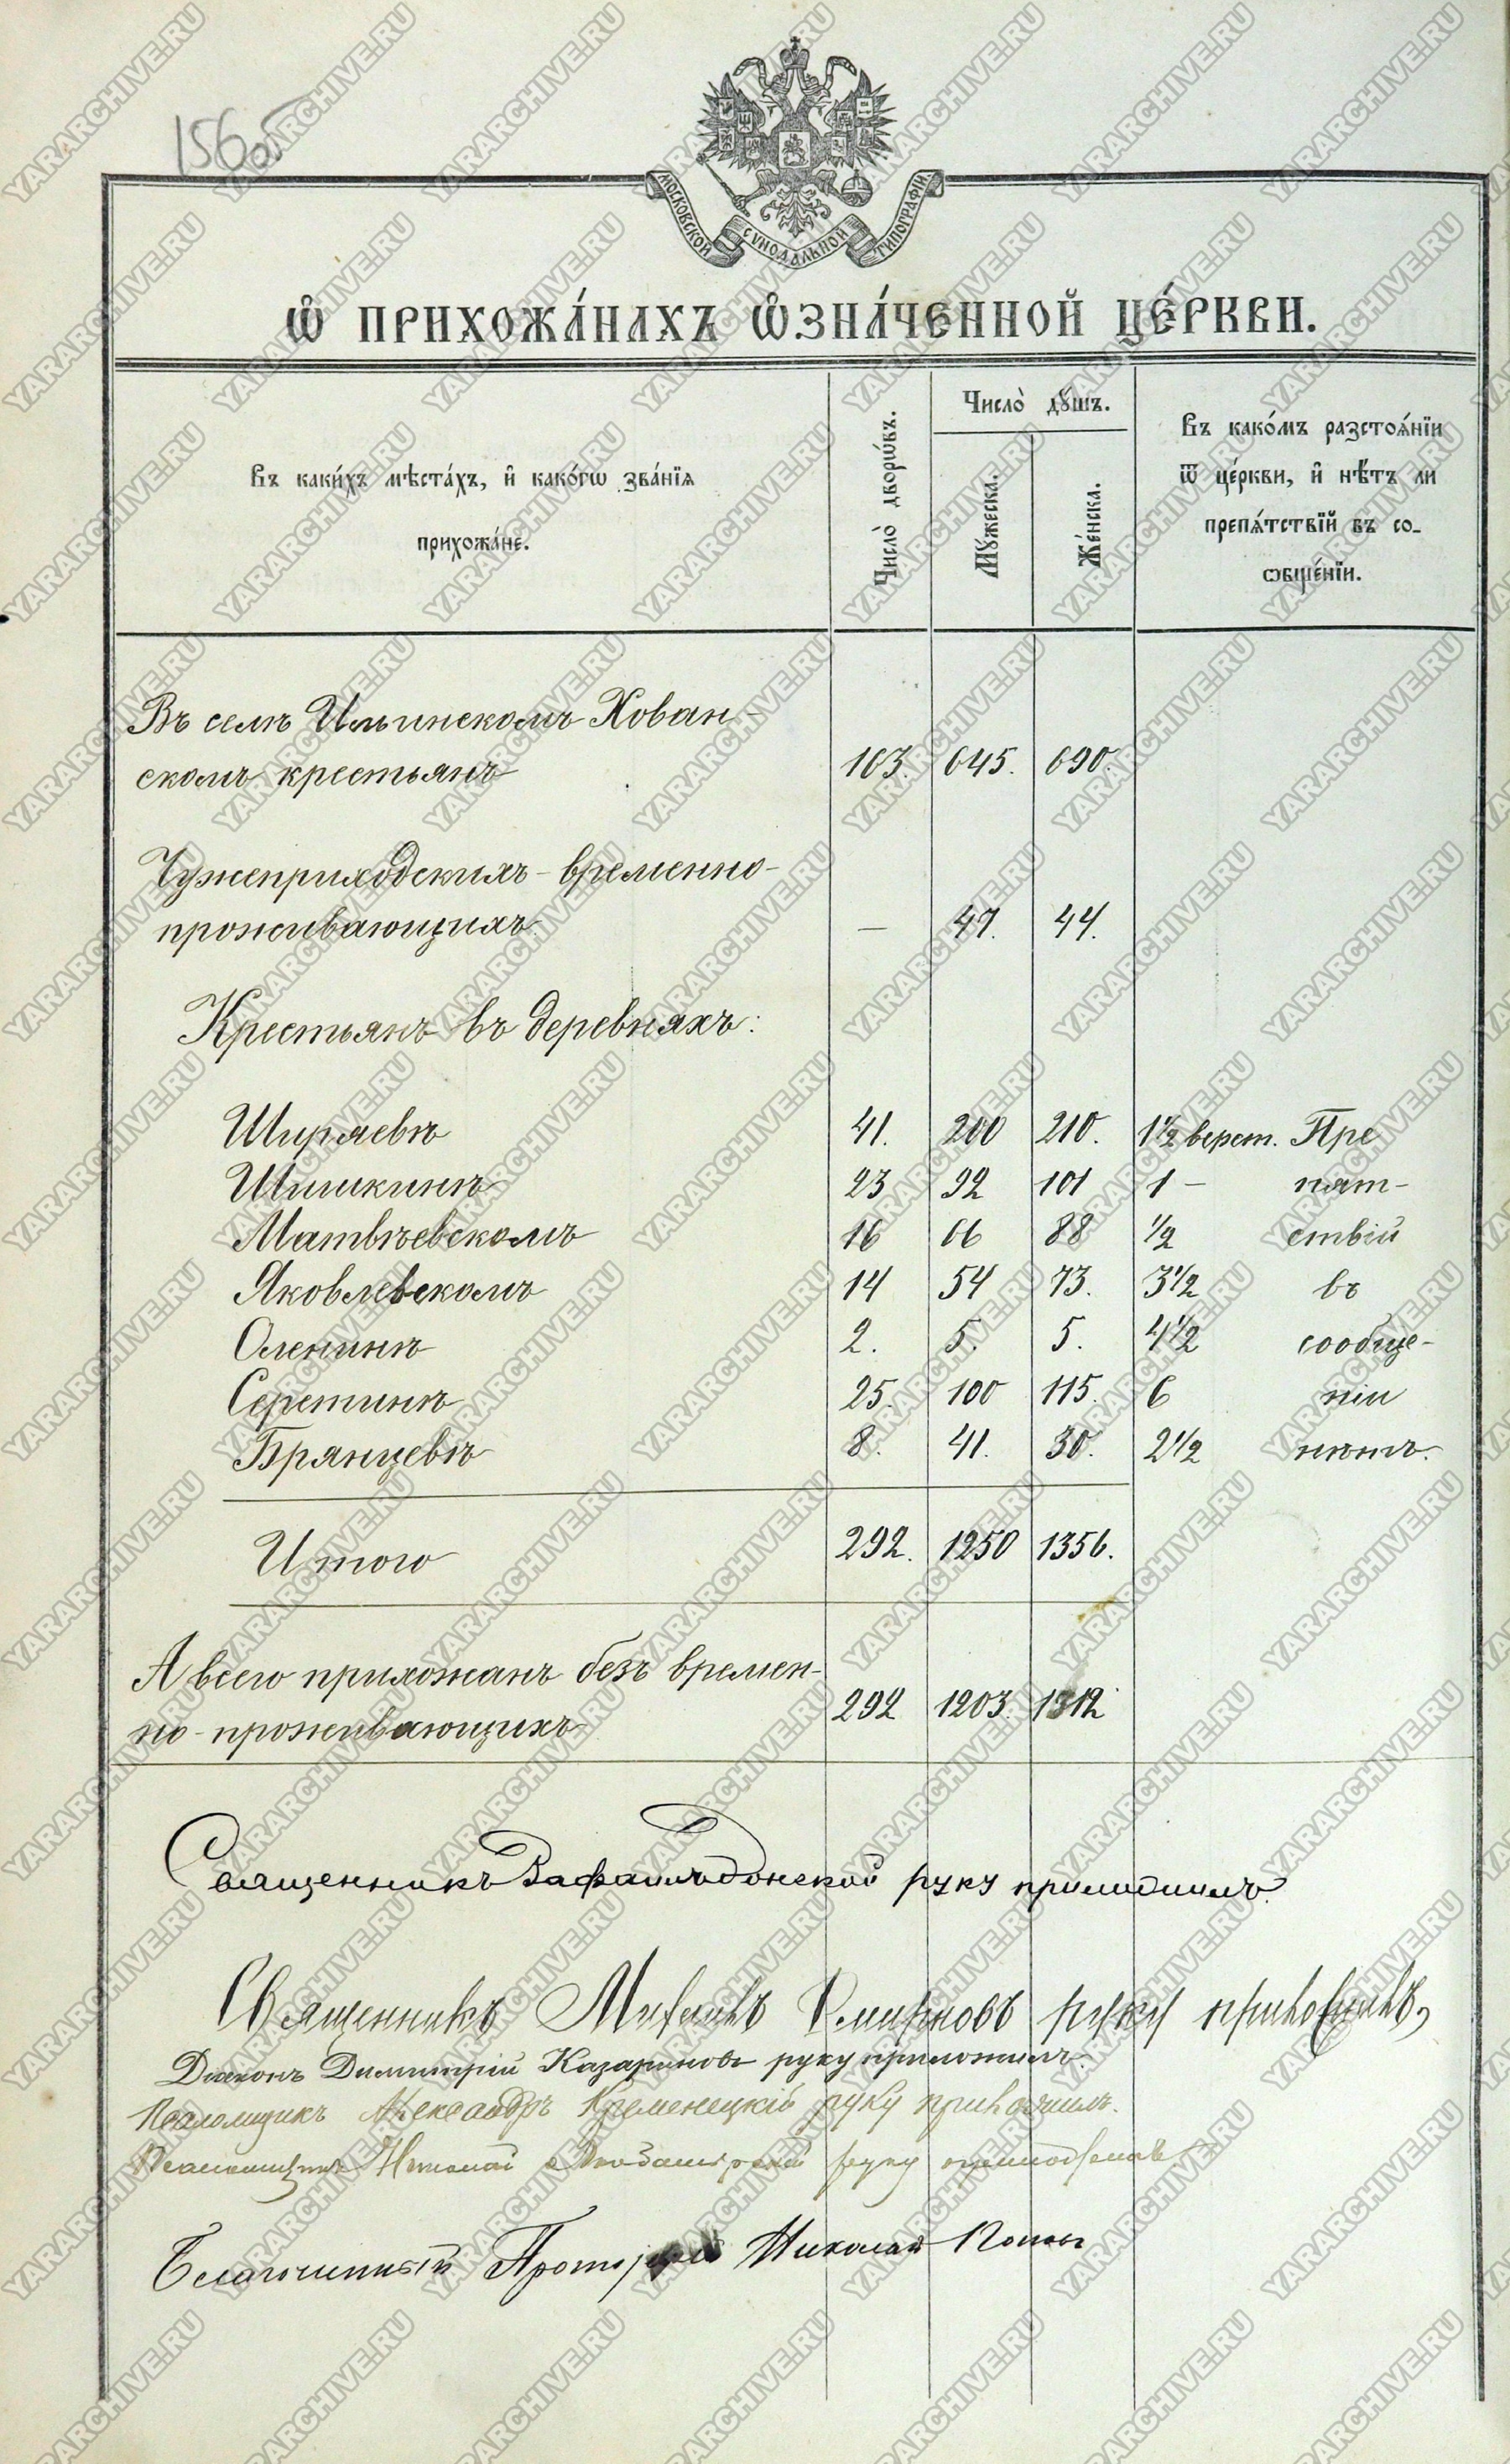 156об
МОСКОВСКОЙ СѴНОДАЛЬНОЙ ТИПОГРАФІИ.
Ѽ ПРИХОЖА́НАХЪ Ѡ҆ЗНА́ЧЕННОЙ ЦЕ́РКВИ.
Въ каки́хъ мѣста́хъ, и҆ како́гѡ зва́нїѧ
прихожа́не.
Число̀ дворѡ́въ.
Число̀ дꙋ́шъ.
Мꙋ́жеска.
Же́нска.
Въ како́мъ разстоѧ́нїи
ѿ це́ркви, и҆ нѣ́тъ ли
препѧ́тствїй въ со-
ѻбще́нїи.
Въ селѣ Ильинскомъ Хован-
скомъ крестьянъ 163. 645. 690.
Чужеприходскихъ - временно-
проживающихъ. — 47. 44.
Крестьянъ въ деревняхъ:
Ширяевѣ 41. 200 210. 1½ верст. Пре
Шишкинѣ 23 92 101 1 — пят-
Матвѣевскомъ 16 66 88 ½ ствій
Яковлевскомъ 14 54 73. 3½ въ
Оленинѣ 2. 5. 5. 4½ сообще-
Серетинѣ 25. 100 115. 6 ніи
Брянцевѣ 8. 41. 30. 2½ нѣтъ.
Итого 292. 1250 1356.
А всего прихожанъ безъ времен-
но-проживающихъ 292 1203. 1312
Священникъ Рафаилъ Донской руку приложилъ.
Священникъ Михаилъ Смирновъ руку приложилъ,
Діаконъ Димитрій Казариновъ руку приложилъ.
Псаломщикъ Александръ Кременецкій руку приложилъ.
Псаломщикъ Николай руку приложилъ
Благочинный Протоіерей Николай Поповъ
YARARCHIVE.RU